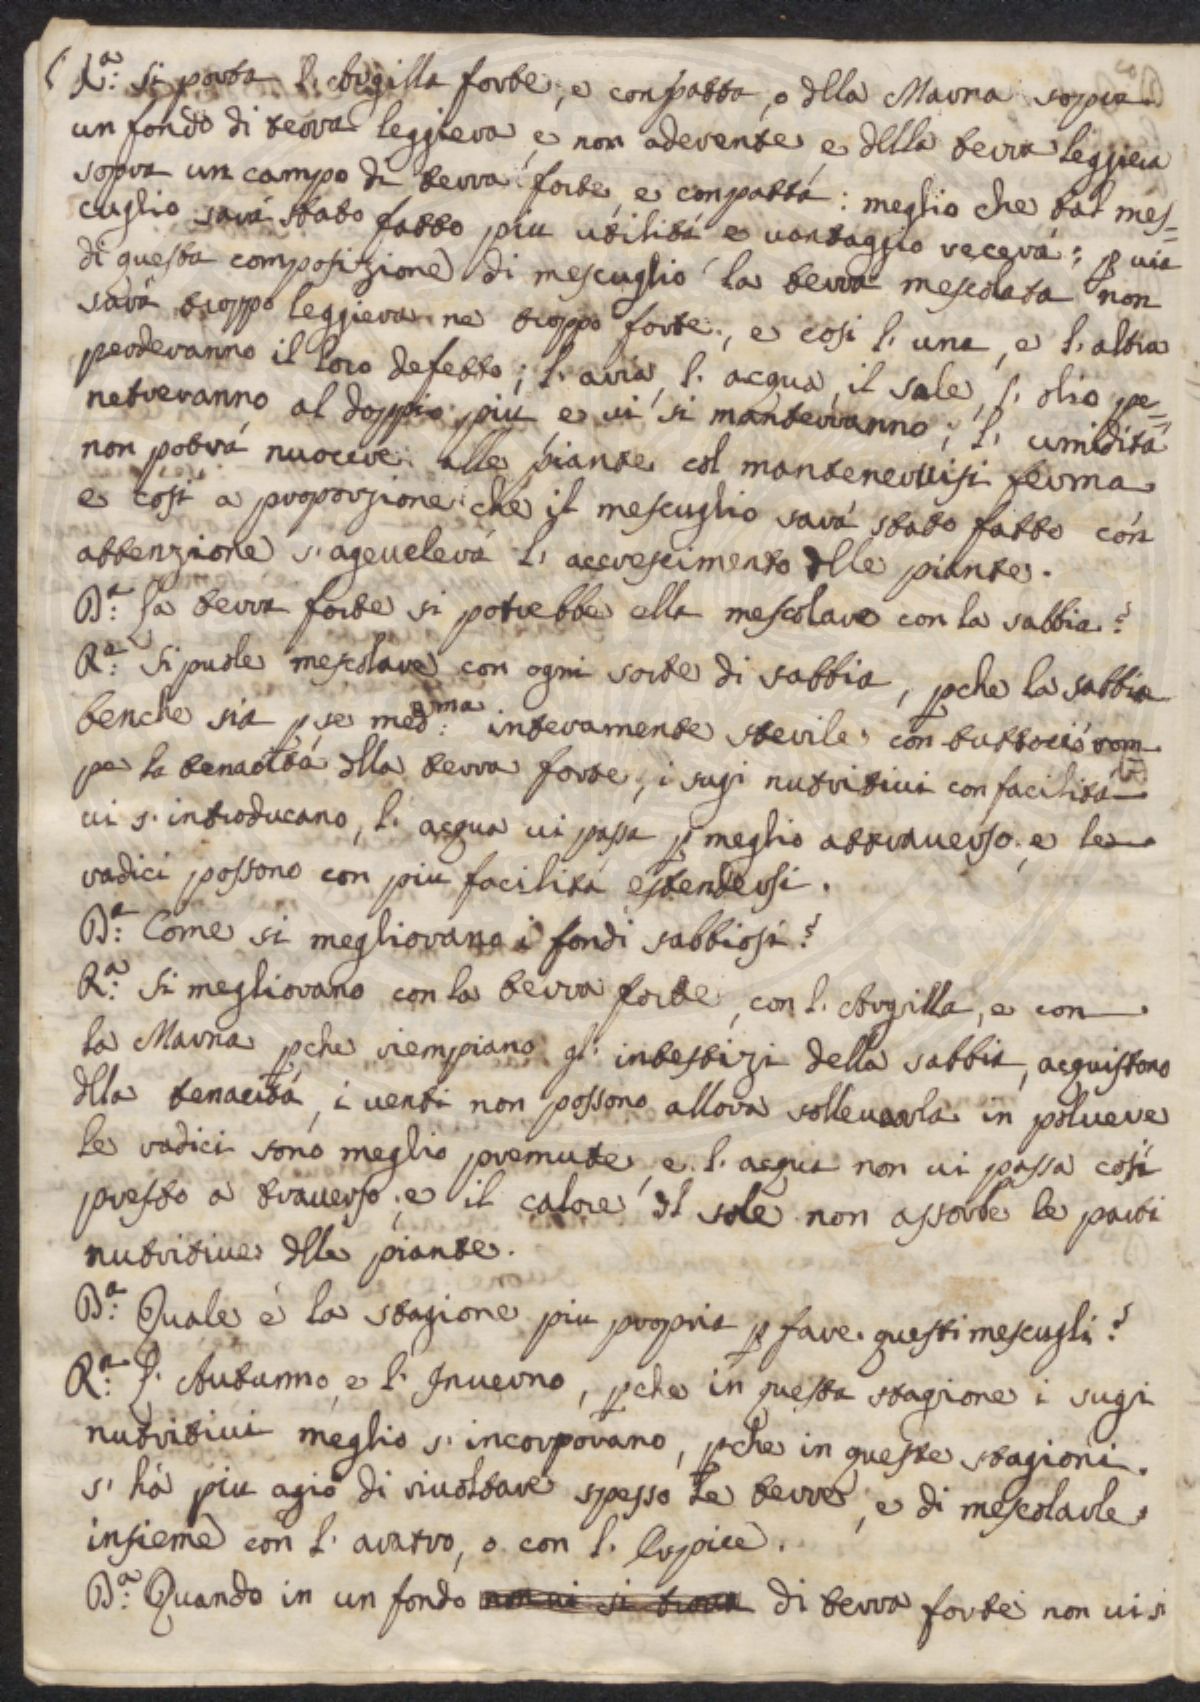 R.a: Si porta l'Argilla forte, e conpatta, o dlla Marna sopra
un fondo di terra leggiera e non aderente e della terra leggiera
sopra un campo di terra forte, e conpatta: meglio che tal mes=
cuglio sará stato fatto piu utilitá e vantaggio recerá; p via
di questa composizione di mescuglio la terra mescolata non
sará troppo leggiera ne troppo forte, e cosi l'una, e l'altra
perderanno il loro defetto; l'aria, l'acqua, il sale, l'olio pe=
netreranno al doppio piu e vi si manterranno; l'umiditá
non potrá nuocere alle piante col mantenervisi ferma
e cosí a proporzione che il mescuglio sará stato fatto con
attenzione s'agevelerá l'accrescimento dlle piante.
D.a: La terra forte si potrebbe ella mescolare con la sabbia?
R.a: Si puole mescolare con ogni sorte di sabbia, pche la sabbia
benche sia p se med.ma: interamente sterile con tuttociò rom
pe la tenacitá dlla terra forte, i sugi nutritivi con facilitá
vi s'introducano, l'acqua vi passa p meglio attraverso e le
radici possono con piu facilitá estendersi.
D.a: Come si megliorano i fondi sabbiosi?
R.a: Si megliorano con la terra forte, con l'Argilla, e con
la Marna pche riempiano gl'intestizi della sabbia, acquistono
dlla tenacitá, i venti non possono allora sollevarla in polvere
le radici sono meglio premute, e l'acqua non vi passa cosí
presto a traverso, e il calore dl sole non assorbe le parti
nutritive dlle piante.
D.a: Quale é la stagione piu propria p fare questi mescugli?
R.a: L'Autunno, e l'Inverno, pche in questa stagione i sugi
nutritivi meglio s'incorporano, pche in queste stagioni
s'há piu agio di rivoltare spesso le terre, e di mescolarle
insieme con l'aratro, o con l'Erpice.
D.a: Quando in un fondo non vi si trova di terra forte non vi si